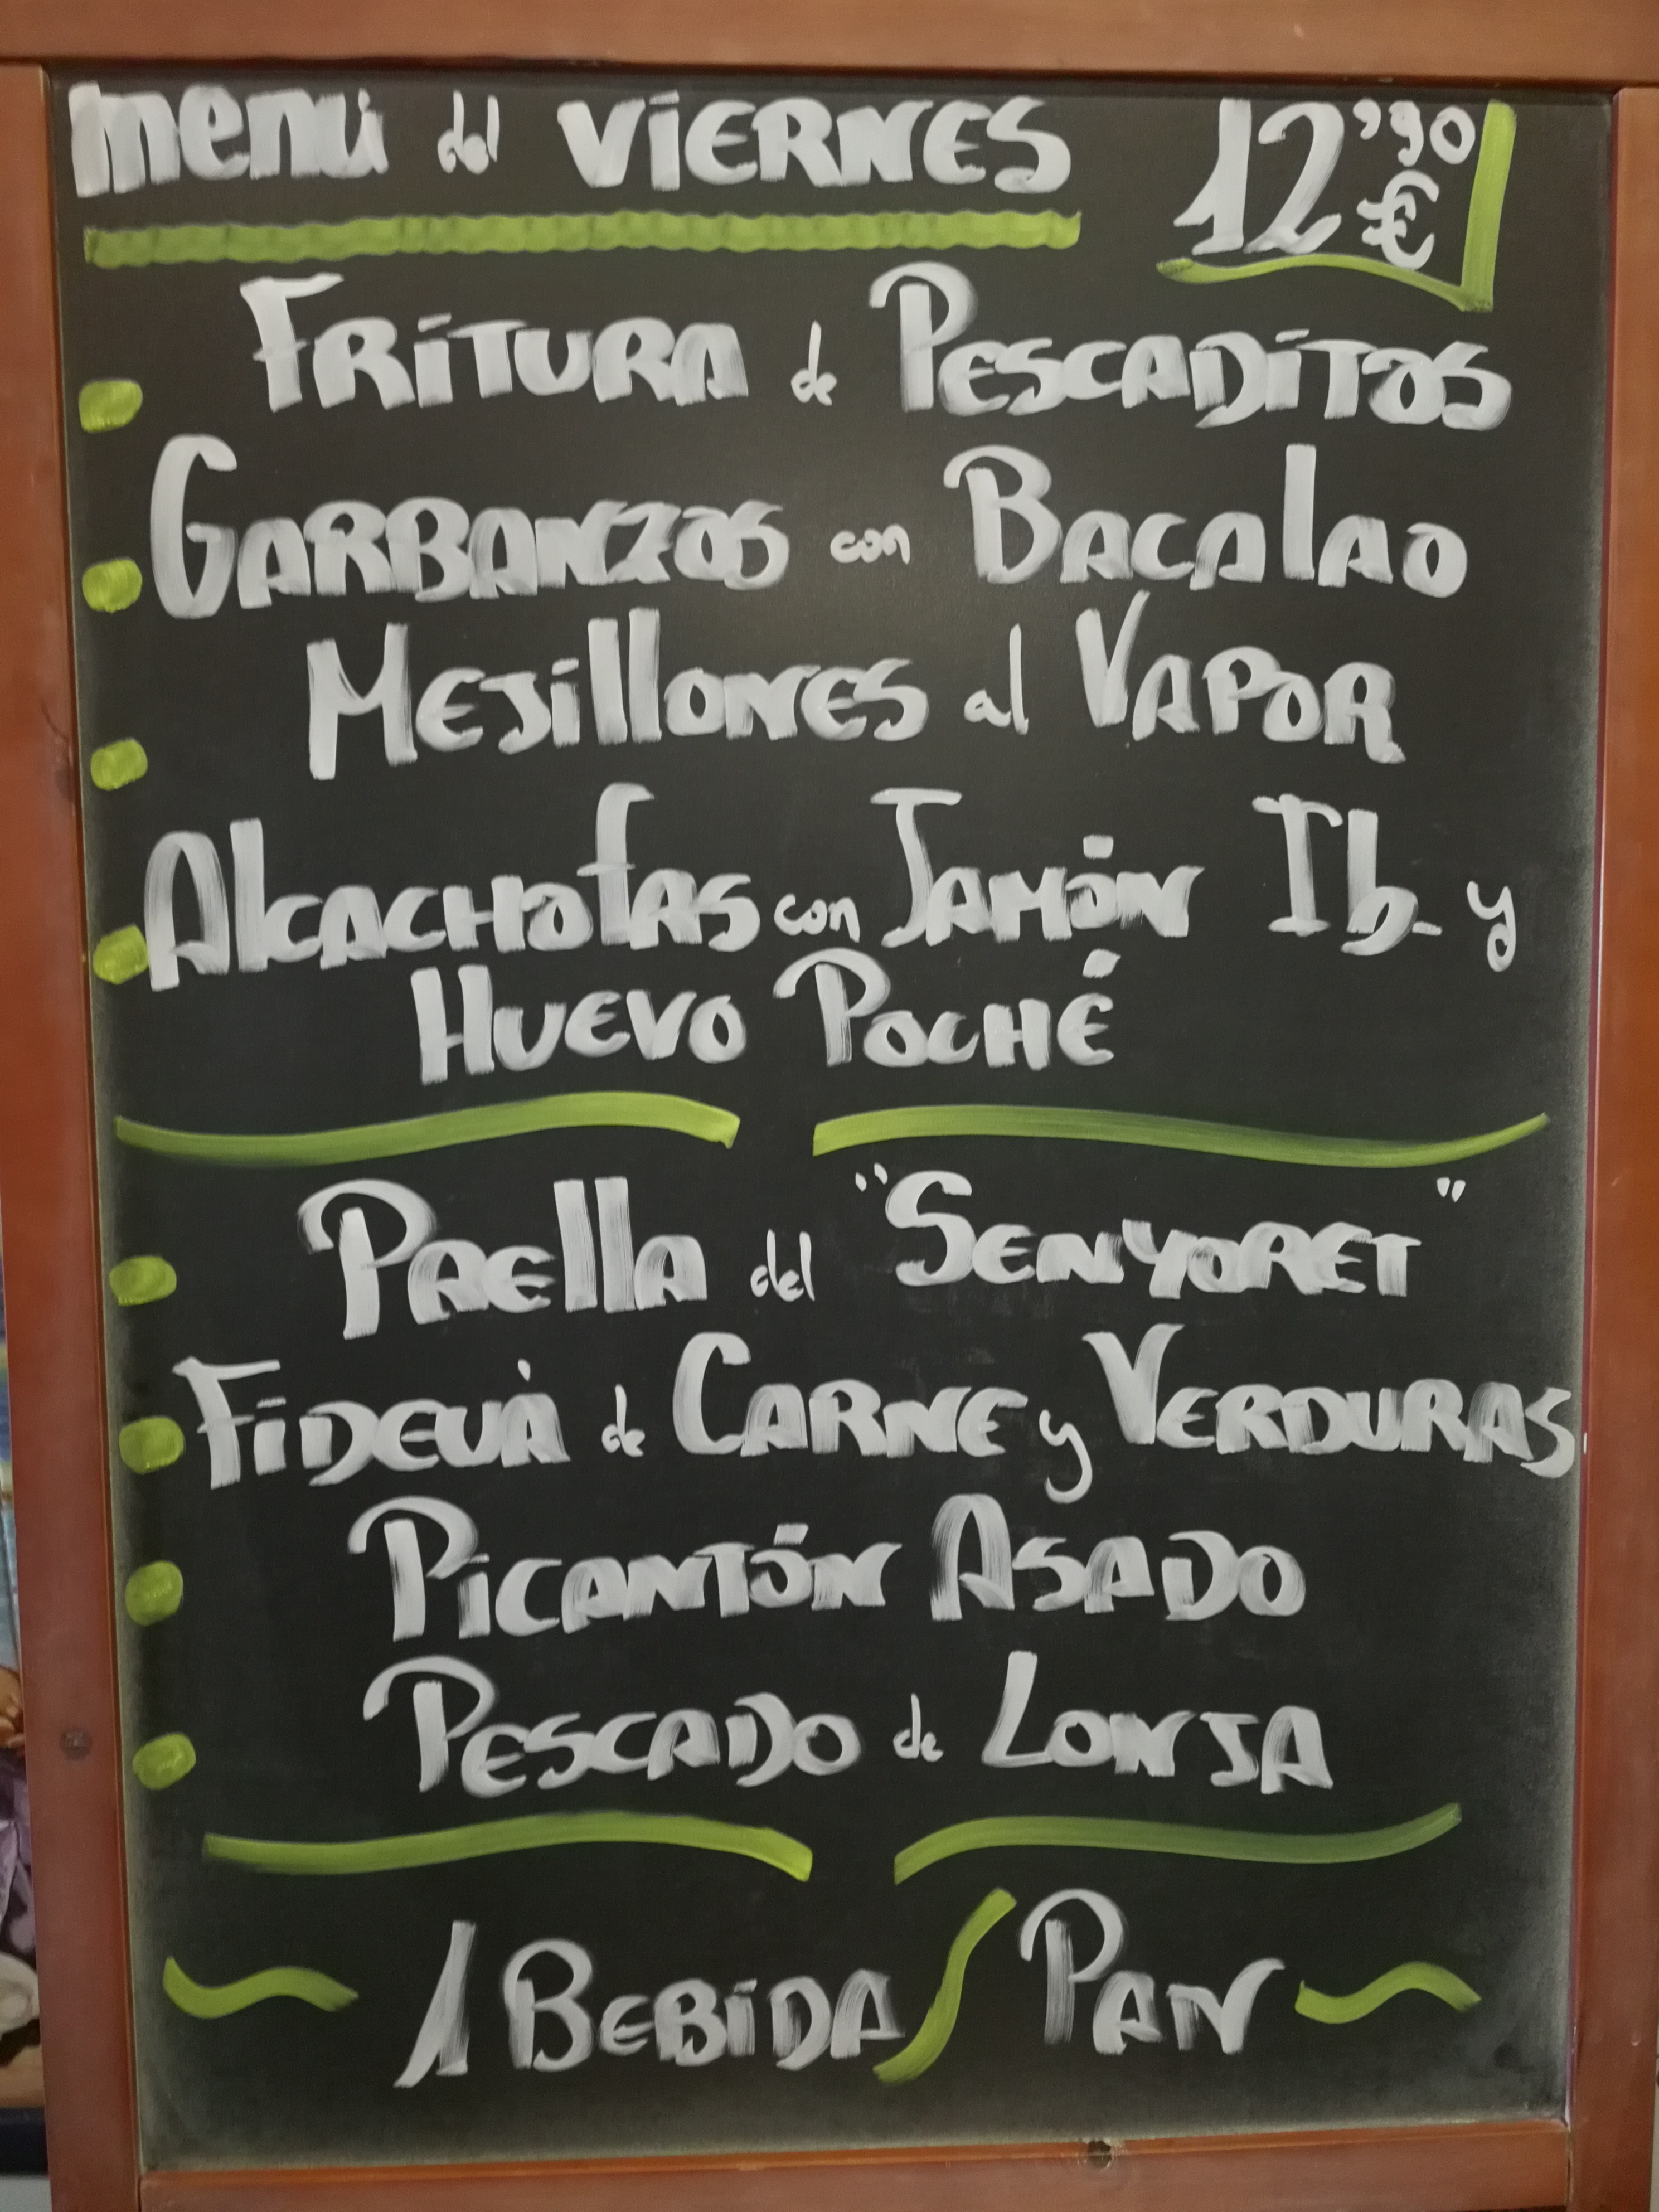 Menú del VIERNES 12'90 €
FRITURA de PESCADITOS
GARBANZOS con BACALAO
MEJILLONES al VAPOR
ALCACHOFAS con JAMÓN Ib. y
HUEVO POCHÉ
PAELLA del "SENYORET"
FIDEUÀ de CARNE y VERDURAS
PICANTÓN ASADO
PESCADO de LONJA
1 BEBIDA / PAN